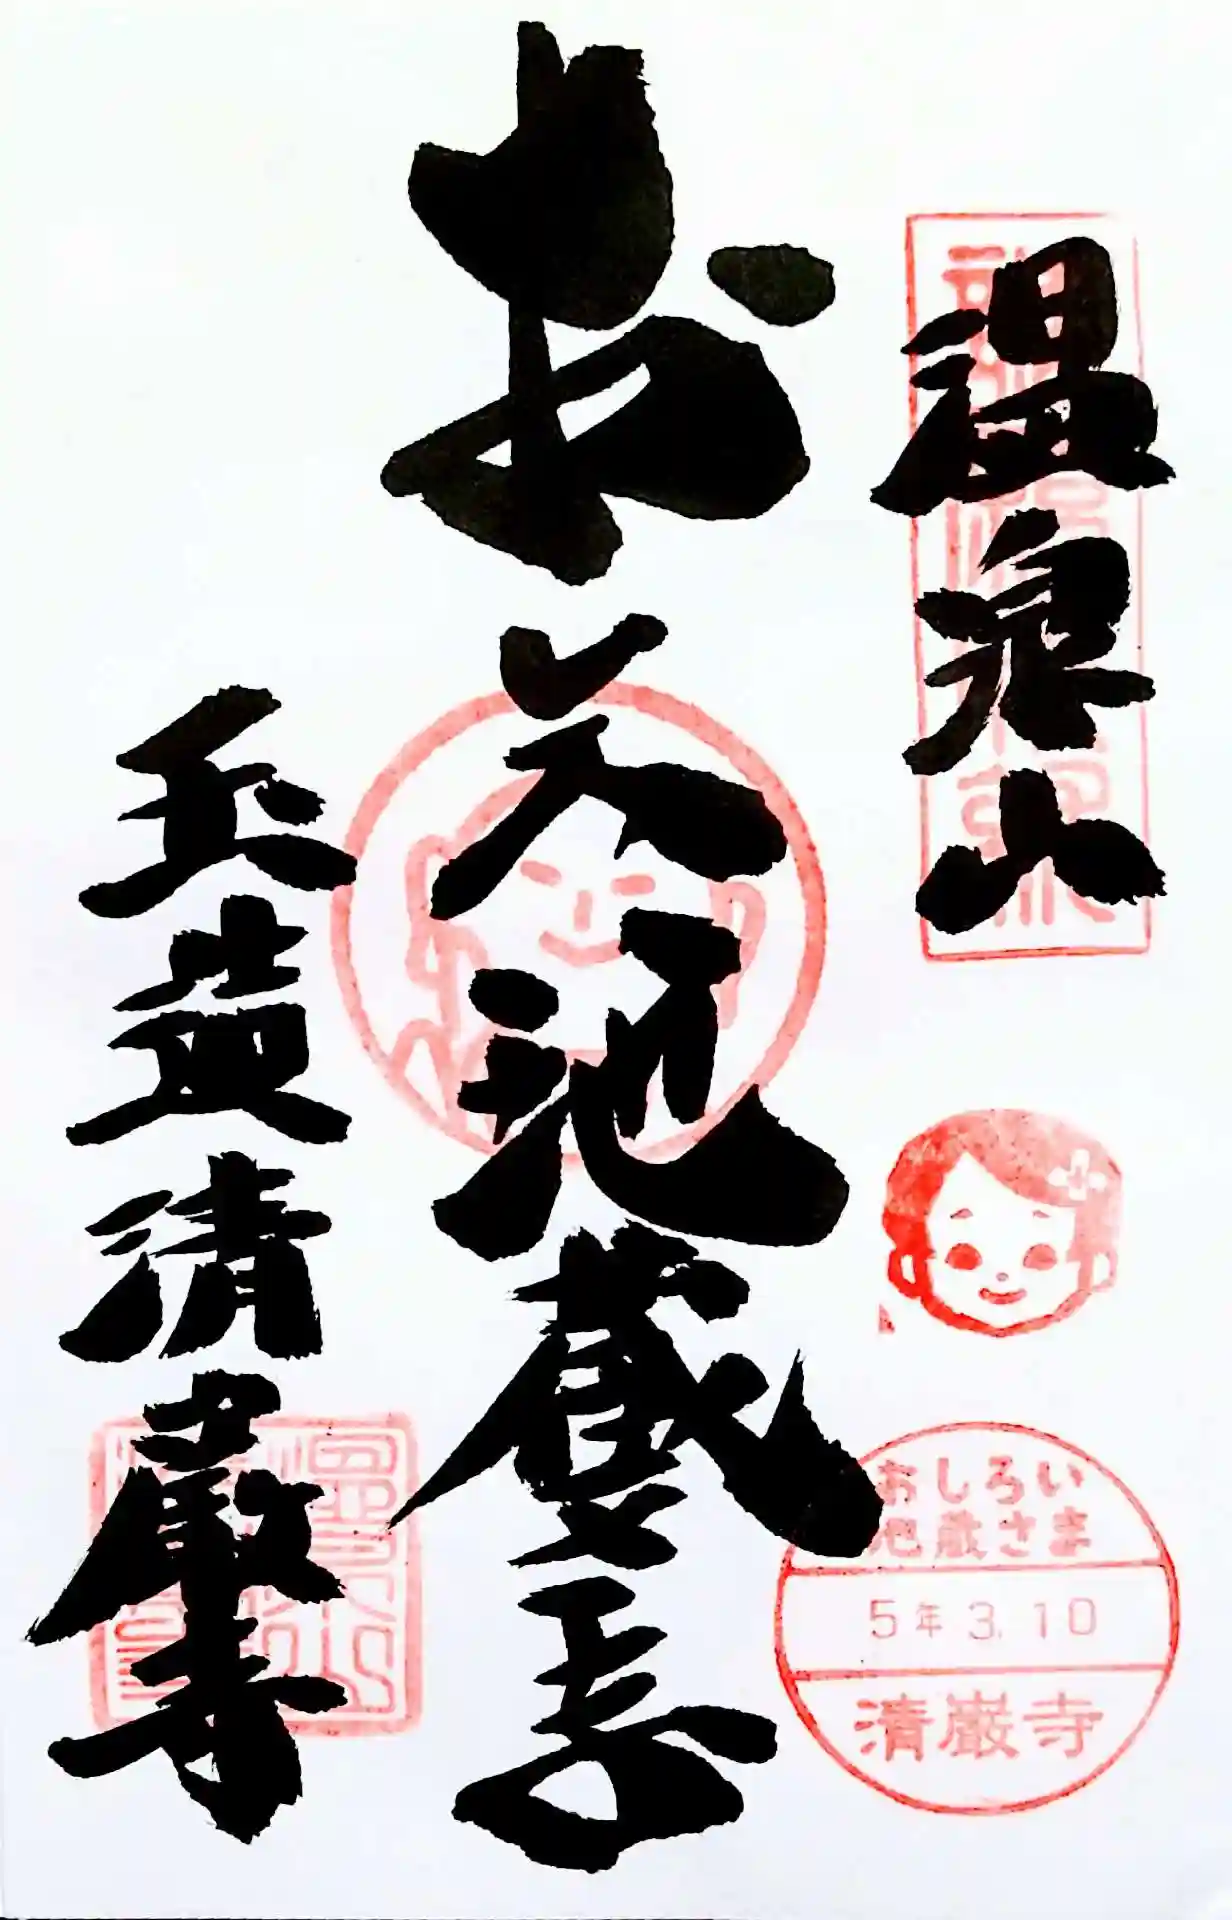 温泉山
お美地蔵
玉造清巌寺
おしろい
地蔵さま
5年3.10
清巌寺